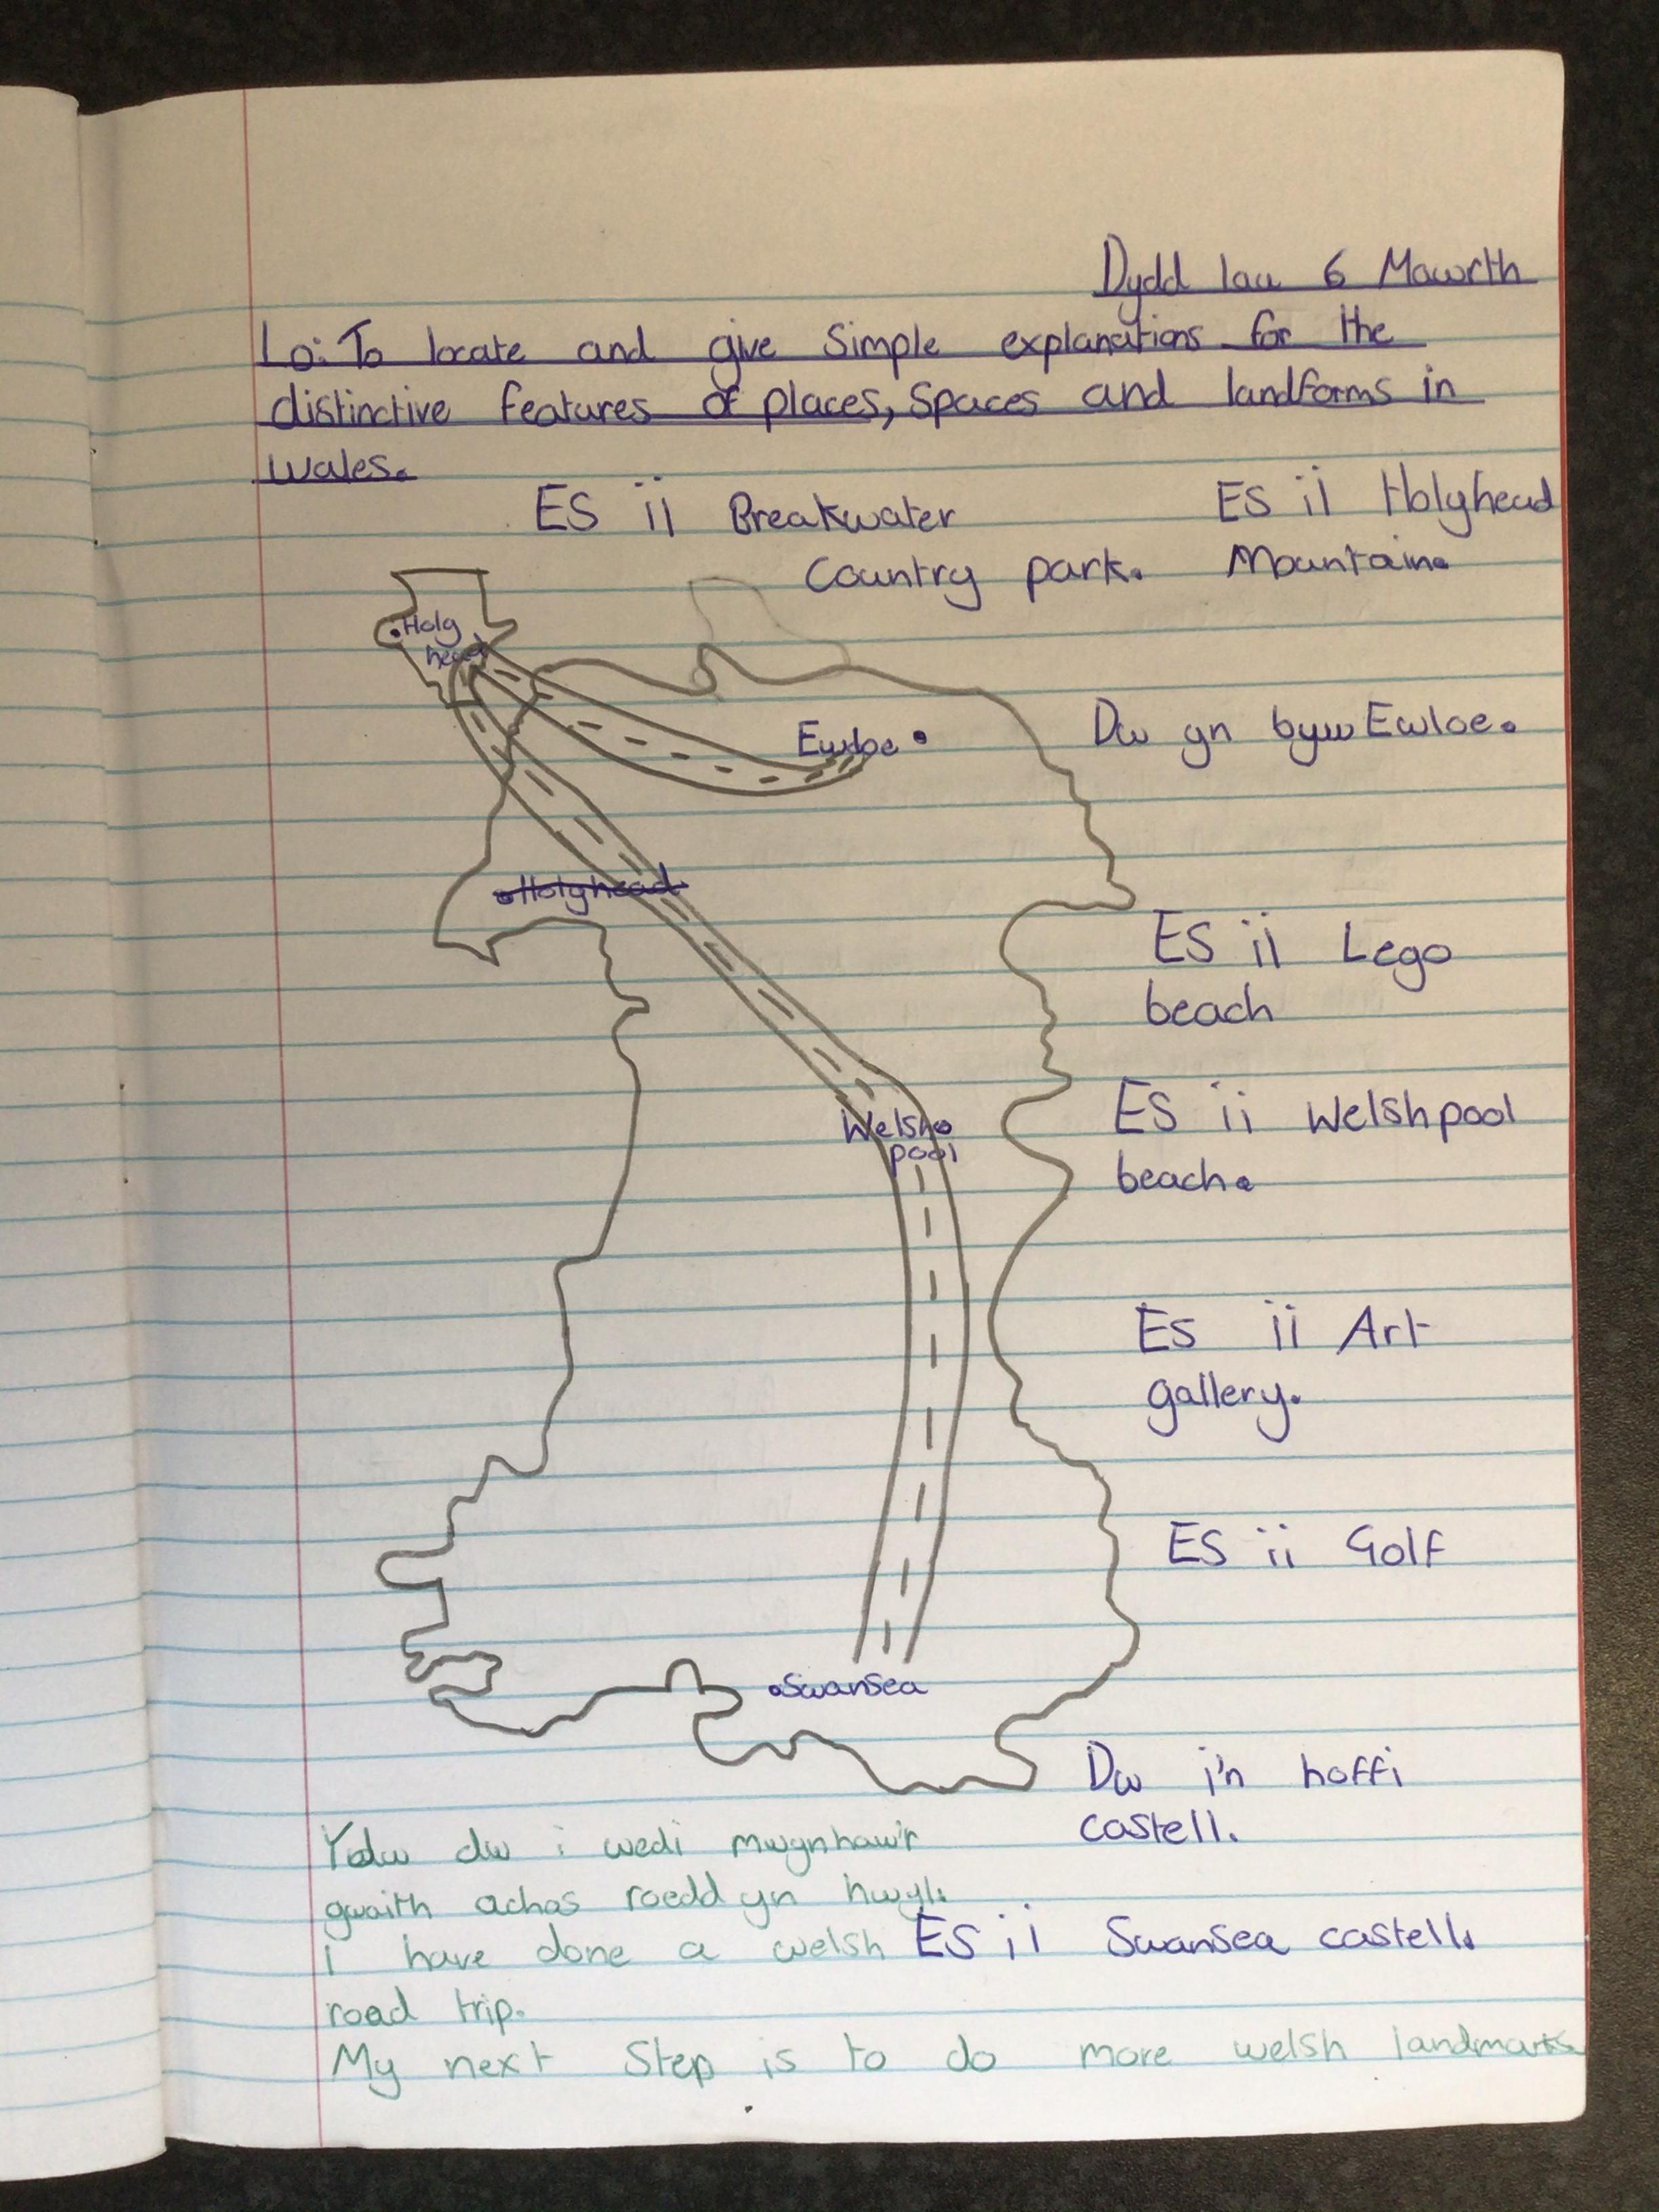 Dydd Iau 6 Mawrth
Lo: To locate and give Simple explanations for the
distinctive features of places, Spaces and landforms in
wales.
ES ii Breakwater
Country park.
ES ii Holyhead
Mountain.
Holy
head
Ewloe
Dw yn byw Ewloe.
Holyhead
ES ii Lego
beach
Welsh
pool
ES ii Welshpool
beach.
Es ii Art
gallery.
ES ii Golf
Swansea
Dw i'n hoffi
castell.
Ydw dw i wedi mwynhaw'r
gwaith achos roedd yn hwyl.
I have done a welsh
road trip.
ES ii Swansea castell.
My next Step is to do more welsh landmarks